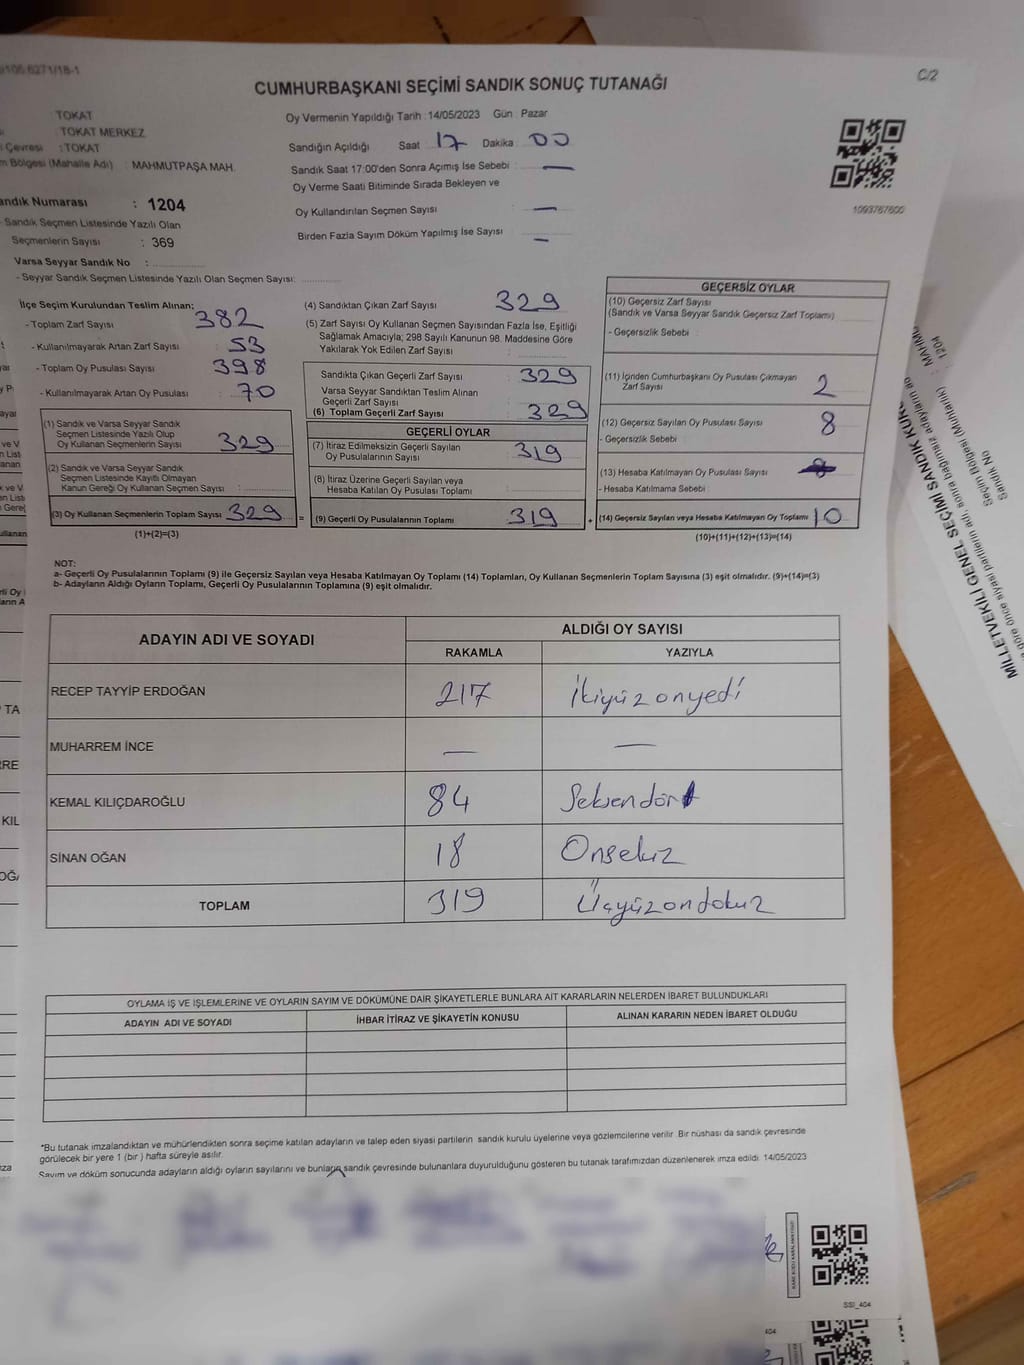 /105.6271/18-1
C/2
CUMHURBAŞKANI SEÇİMİ SANDIK SONUÇ TUTANAĞI
: TOKAT
: TOKAT MERKEZ
i Çevresi : TOKAT
m Bölgesi (Mahalle Adı) : MAHMUTPAŞA MAH.
andık Numarası : 1204
- Sandık Seçmen Listesinde Yazılı Olan
Seçmenlerin Sayısı : 369
Varsa Seyyar Sandık No :
- Seyyar Sandık Seçmen Listesinde Yazılı Olan Seçmen Sayısı:
Oy Vermenin Yapıldığı Tarih : 14/05/2023 Gün : Pazar
Sandığın Açıldığı Saat 17 Dakika 00
Sandık Saat 17:00'den Sonra Açımış İse Sebebi : —
Oy Verme Saati Bitiminde Sırada Bekleyen ve
Oy Kullandırılan Seçmen Sayısı : —
Birden Fazla Sayım Döküm Yapılmış İse Sayısı : —
1093767600
İlçe Seçim Kurulundan Teslim Alınan;
- Toplam Zarf Sayısı : 382
- Kullanılmayarak Artan Zarf Sayısı : 53
- Toplam Oy Pusulası Sayısı : 398
- Kullanılmayarak Artan Oy Pusulası : 70
(1) Sandık ve Varsa Seyyar Sandık
Seçmen Listesinde Yazılı Olup
Oy Kullanan Seçmenlerin Sayısı : 329
(2) Sandık ve Varsa Seyyar Sandık
Seçmen Listesinde Kayıtlı Olmayan
Kanun Gereği Oy Kullanan Seçmen Sayısı :
(3) Oy Kullanan Seçmenlerin Toplam Sayısı : 329
(1)+(2)=(3)
(4) Sandıktan Çıkan Zarf Sayısı : 329
(5) Zarf Sayısı Oy Kullanan Seçmen Sayısından Fazla İse, Eşitliği
Sağlamak Amacıyla; 298 Sayılı Kanunun 98. Maddesine Göre
Yakılarak Yok Edilen Zarf Sayısı :
Sandıkta Çıkan Geçerli Zarf Sayısı : 329
Varsa Seyyar Sandıktan Teslim Alınan
Geçerli Zarf Sayısı :
(6) Toplam Geçerli Zarf Sayısı : 329
GEÇERLİ OYLAR
(7) İtiraz Edilmeksizin Geçerli Sayılan
Oy Pusulalarının Sayısı : 319
(8) İtiraz Üzerine Geçerli Sayılan veya
Hesaba Katılan Oy Pusulası Toplamı :
= (9) Geçerli Oy Pusulalarının Toplamı : 319
GEÇERSİZ OYLAR
(10) Geçersiz Zarf Sayısı
(Sandık ve Varsa Seyyar Sandık Geçersiz Zarf Toplamı)
- Geçersizlik Sebebi :
(11) İçinden Cumhurbaşkanı Oy Pusulası Çıkmayan
Zarf Sayısı : 2
(12) Geçersiz Sayılan Oy Pusulası Sayısı : 8
- Geçersizlik Sebebi :
(13) Hesaba Katılmayan Oy Pusulası Sayısı :
- Hesaba Katılmama Sebebi :
+ (14) Geçersiz Sayılan veya Hesaba Katılmayan Oy Toplamı : 10
(10)+(11)+(12)+(13)=(14)
NOT:
a- Geçerli Oy Pusulalarının Toplamı (9) ile Geçersiz Sayılan veya Hesaba Katılmayan Oy Toplamı (14) Toplamları, Oy Kullanan Seçmenlerin Toplam Sayısına (3) eşit olmalıdır. (9)+(14)=(3)
b- Adayların Aldığı Oyların Toplamı, Geçerli Oy Pusulalarının Toplamına (9) eşit olmalıdır.
ADAYIN ADI VE SOYADI ALDIĞI OY SAYISI
RAKAMLA YAZIYLA
RECEP TAYYİP ERDOĞAN 217 İkiyüz onyedi
MUHARREM İNCE — —
KEMAL KILIÇDAROĞLU 84 Seksendört
SİNAN OĞAN 18 Onsekiz
TOPLAM 319 Üçyüzondokuz
OYLAMA İŞ VE İŞLEMLERİNE VE OYLARIN SAYIM VE DÖKÜMÜNE DAİR ŞİKAYETLERLE BUNLARA AİT KARARLARIN NELERDEN İBARET BULUNDUKLARI
ADAYIN ADI VE SOYADI İHBAR İTİRAZ VE ŞİKAYETİN KONUSU ALINAN KARARIN NEDEN İBARET OLDUĞU
*Bu tutanak imzalandıktan ve mühürlendikten sonra seçime katılan adayların ve talep eden siyasi partilerin sandık kurulu üyelerine veya gözlemcilerine verilir. Bir nüshası da sandık çevresinde
görülecek bir yere 1 (bir ) hafta süreyle asılır.
Sayım ve döküm sonucunda adayların aldığı oyların sayılarını ve bunların sandık çevresinde bulunanlara duyurulduğunu gösteren bu tutanak tarafımızdan düzenlenerek imza edildi. 14/05/2023
SSI_404
404
MİLLETVEKİLİ GENEL SEÇİMİ SANDIK KUR
Seçim Bölgesi (Muhtarlık)
Sandık No
: 1204